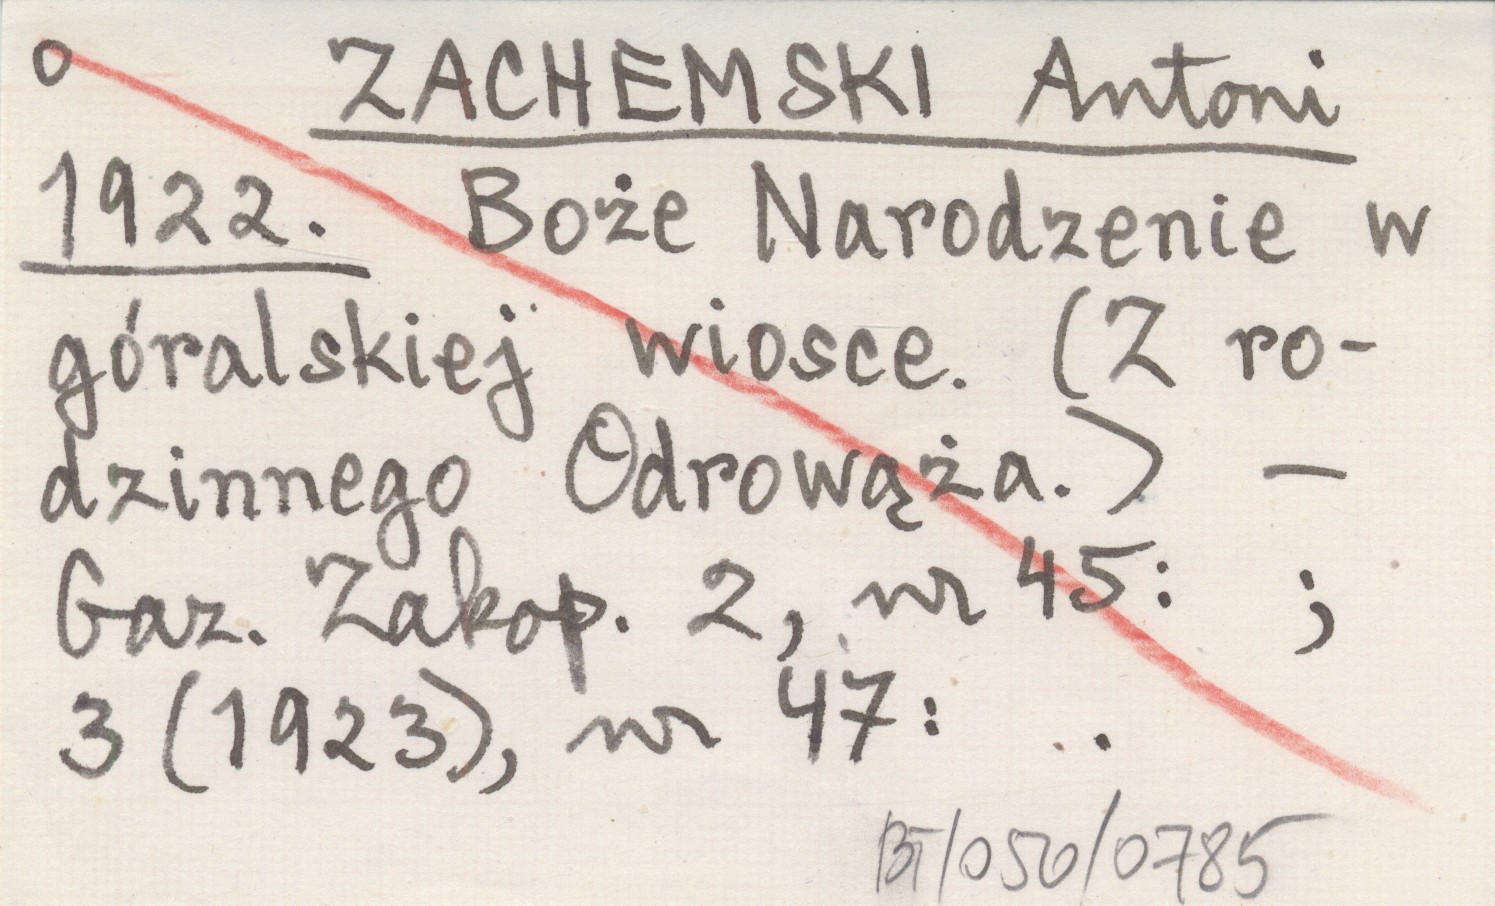 o ZACHEMSKI Antoni
1922. Boże Narodzenie w
góralskiej wiosce. (Z ro-
dzinnego Odrowąża.) —
Gaz. Zakop. 2, nr 45: ;
3 (1923), nr 47: .
BT/050/0785